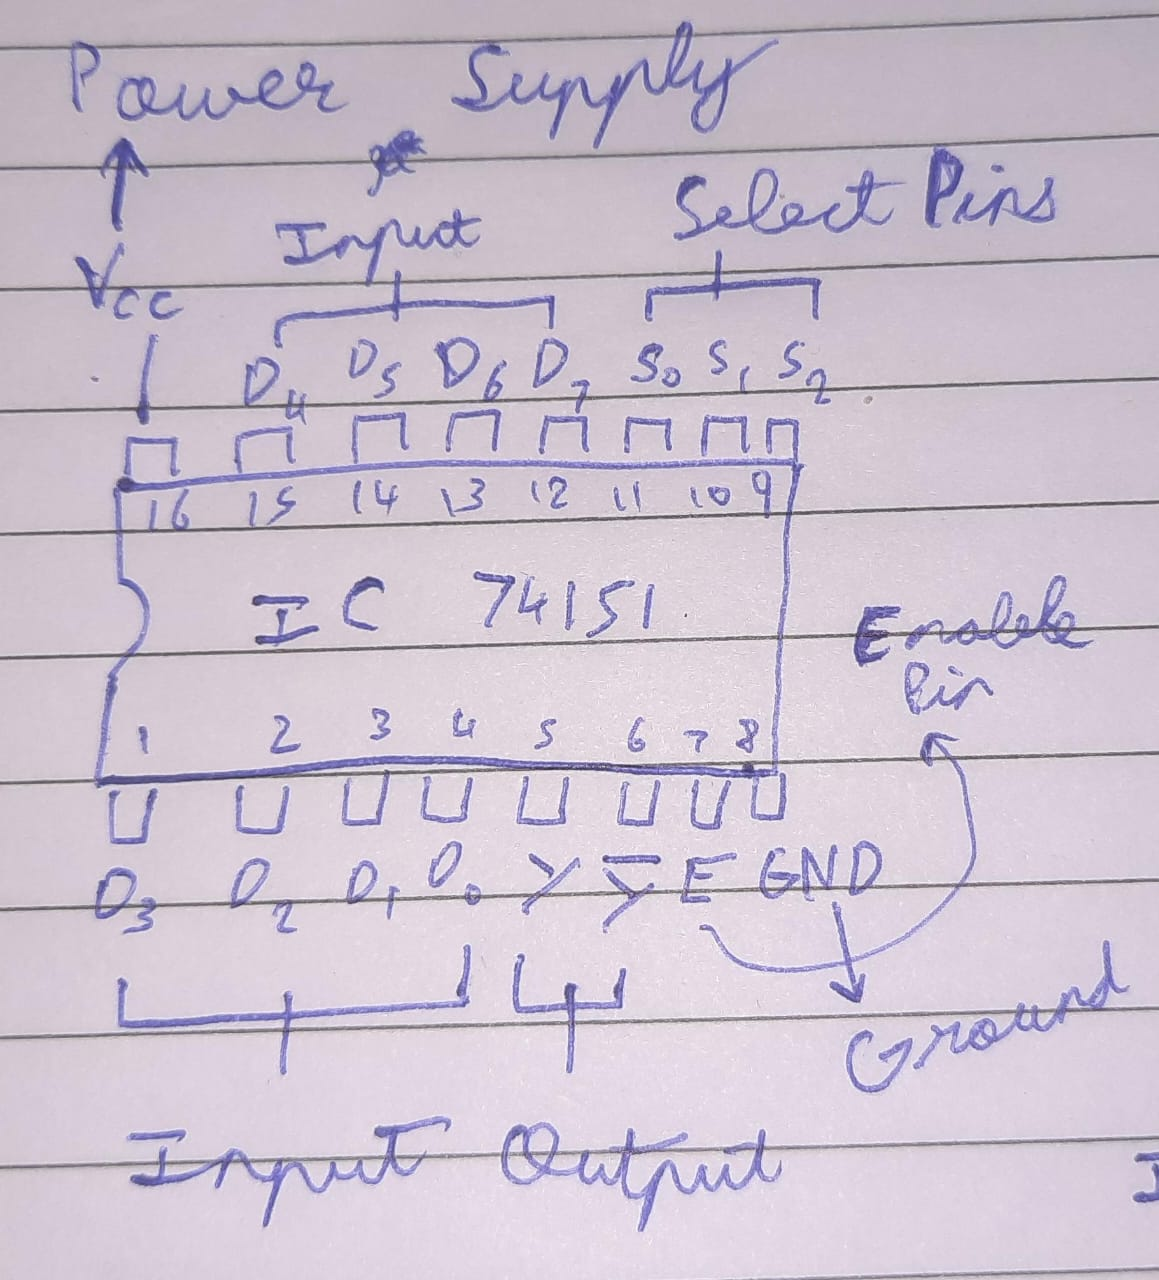 Power Supply
Input Select Pins
Vcc
D₄ D₅ D₆ D₇ S₀ S₁ S₂
16 15 14 13 12 11 10 9
IC 74151
Enable
Pin
1 2 3 4 5 6 7 8
D₃ D₂ D₁ D₀ Y Y̅ E GND
Ground
Input Output
I